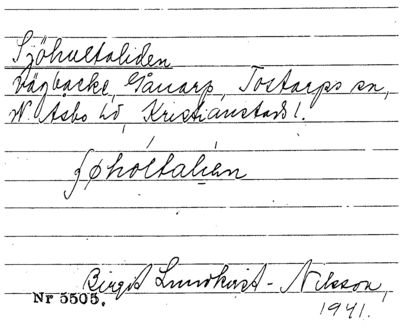 Sjöhultaliden
Vägbacke, Gånarp, Tostarps sn,
N. Åsbo hd, Kristianstads l.
ʃøhòltalíən
Birgit Lundkvist - Nilsson,
Nr 5505.
1941.